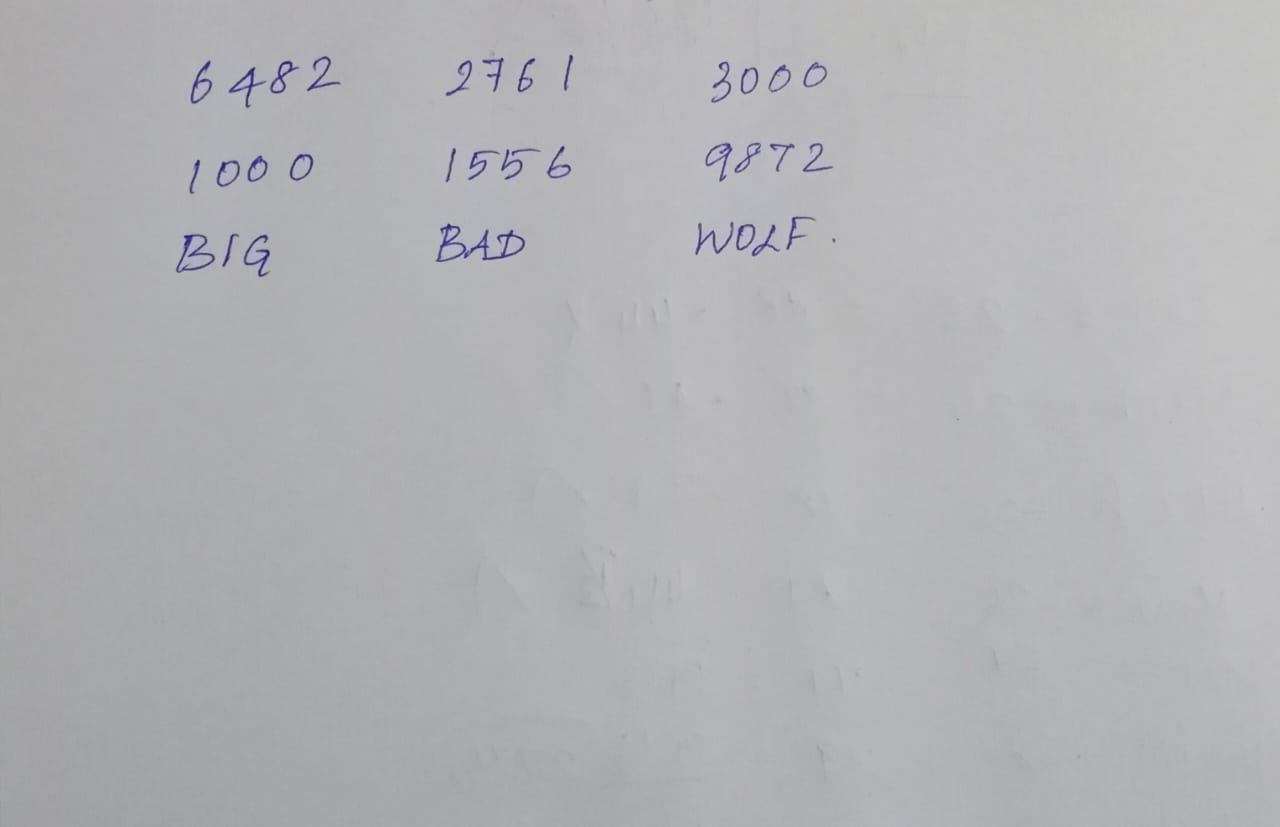 6482 2761 3000
1000 1556 9872
BIG BAD WOLF.